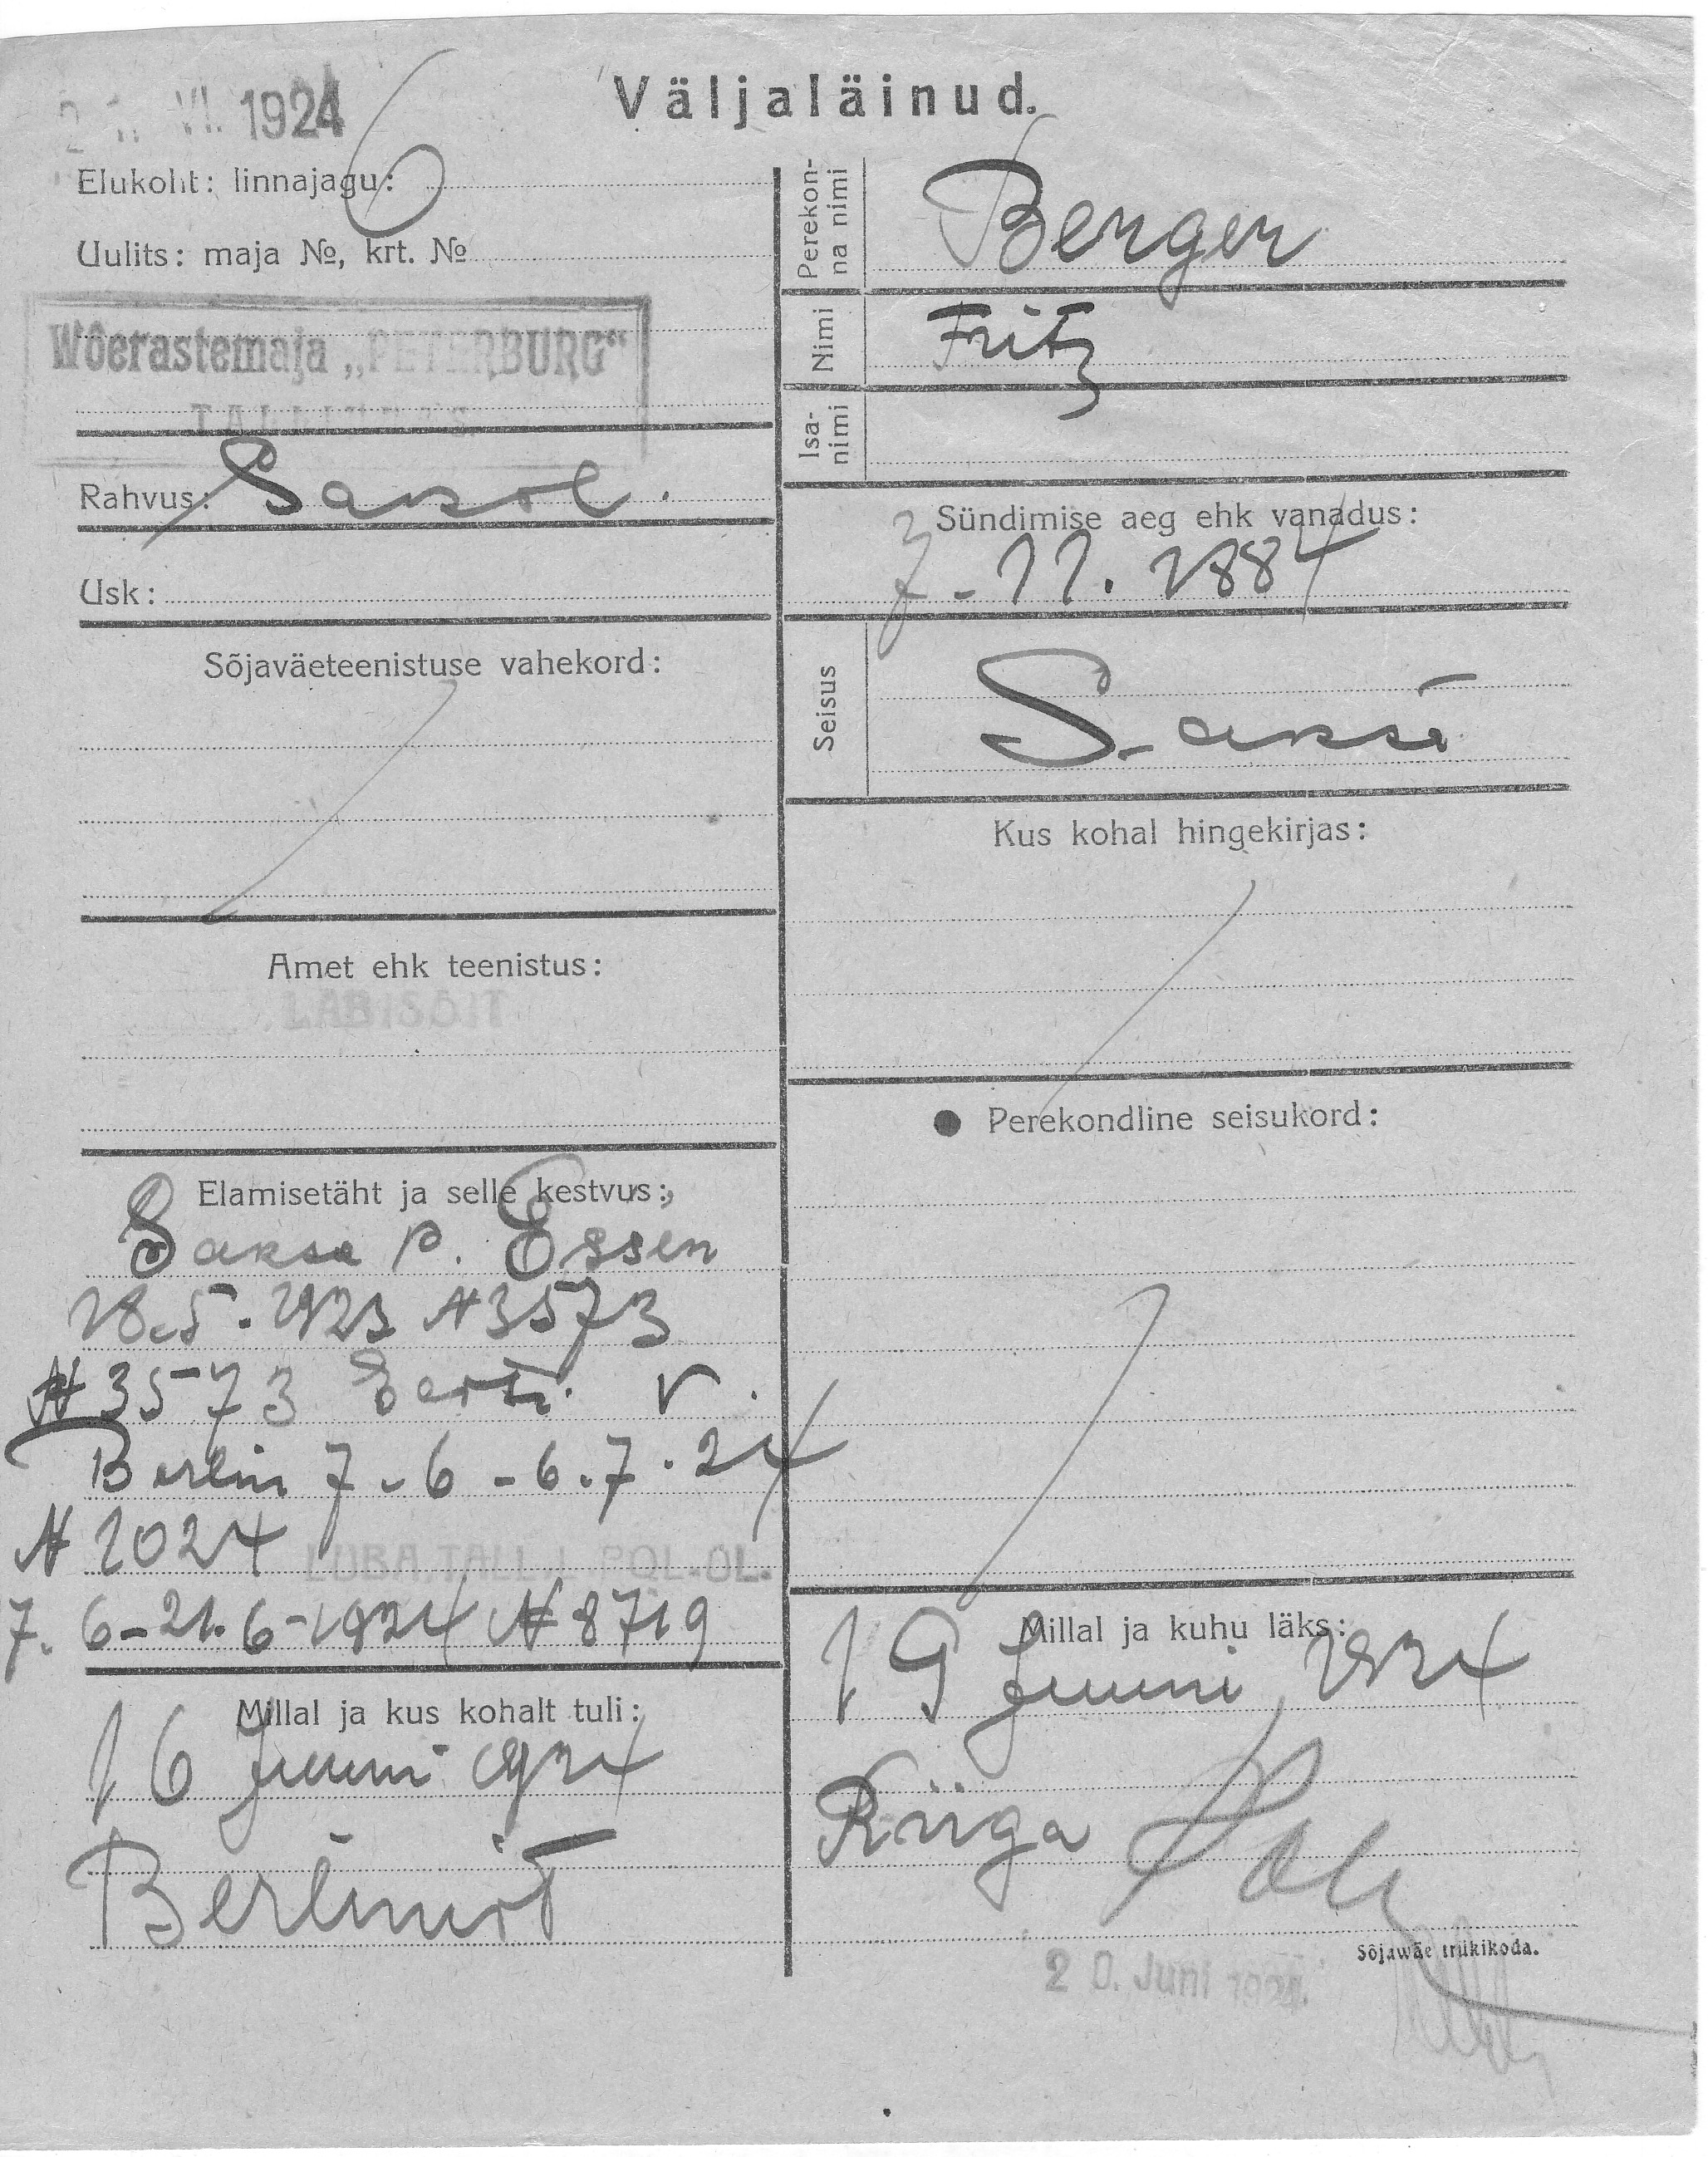 VI. 1924
Väljaläinud.
6
Elukoht: linnajagu:
Uulits: maja №, krt. №
Wõerastemaja „PETERBURG“
Rahvus: Saksl.
Usk:
Sõjaväeteenistuse vahekord:
Amet ehk teenistus:
LÄBISÕIT
Elamisetäht ja selle kestvus:
Saksa p. Essen
28.5.1923 N 3573
N 3573 Eesti V.
Berlin 7.6 - 6.7.24
N 1024
LUBA. TALL. POL. OL.
7. 6-21.6-1924 N 8719
Millal ja kus kohalt tuli:
16 Juuni 1924
Berlinist
Perekon-
na nimi
Berger
Nimi
Fritz
Isa-
nimi
Sündimise aeg ehk vanadus:
7-11.1884
Seisus
Saksa
Kus kohal hingekirjas:
Perekondline seisukord:
Millal ja kuhu läks:
19 Juuni 1924
Riiga
Sõjawäe trükikoda.
20. Juni 1924.